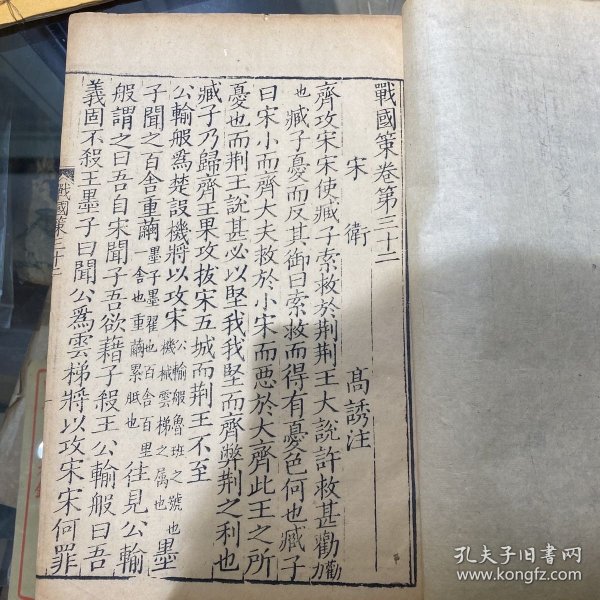 戰國策卷第三十二
宋 衛 高誘注
齊攻宋宋使臧子索救於荊荊王大說許救甚勸勸力
也臧子憂而反其御曰索救而得有憂色何也臧子
曰宋小而齊大夫救於小宋而惡於大齊此王之所
憂也而荊王說甚必以堅我我堅而齊弊荊之利也
臧子乃歸齊王果攻拔宋五城而荊王不至
公輸般為楚設機將以攻宋公輸般魯班之號也機械雲梯之屬也墨
子聞之百舍重繭墨子墨翟也百舍百里一舍也重繭累胝也往見公輸
般謂之曰吾自宋聞子吾欲藉子殺王公輸般曰吾
義固不殺王墨子曰聞公為雲梯將以攻宋宋何罪
戰國策三十二
孔夫子旧书网
www.kongfz.com